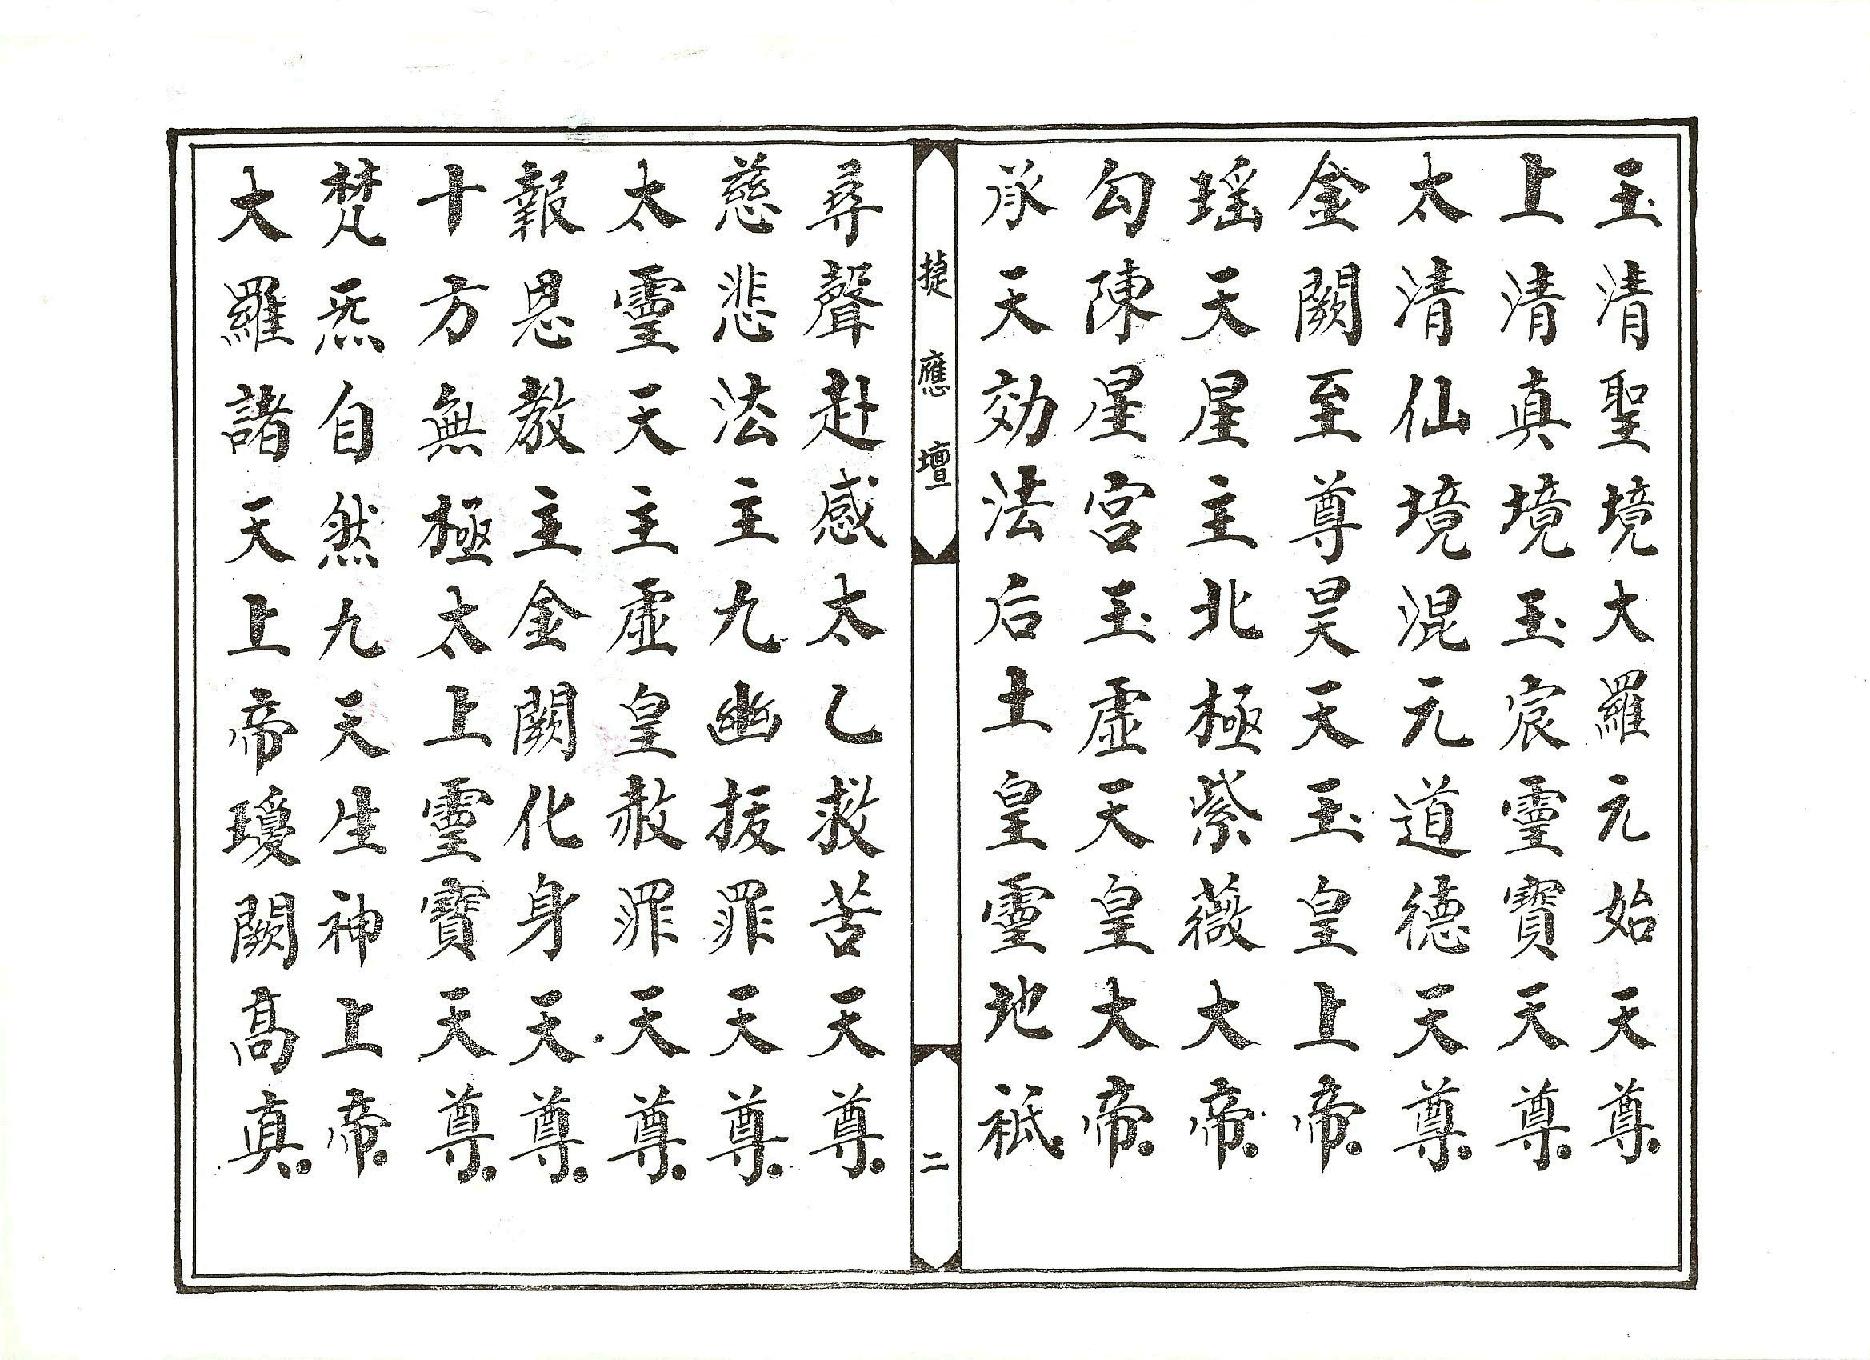 玉清聖境大羅元始天尊
上清真境玉宸靈寶天尊
太清仙境混元道德天尊
金闕至尊昊天玉皇上帝
瑤天星主北極紫薇大帝
勾陳星宮玉虛天皇大帝
承天効法后土皇靈地祇
捷應壇
二
尋聲赴感太乙救苦天尊
慈悲法主九幽拔罪天尊
太靈天主虛皇赦罪天尊
報恩教主金闕化身天尊
十方無極太上靈寶天尊
梵炁自然九天生神上帝
大羅諸天上帝瓊闕高真